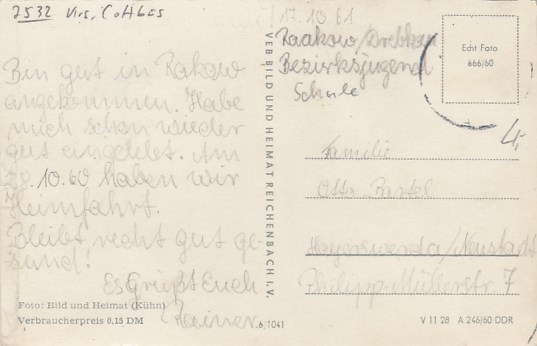 2532 Krs. Cottbus
17.10.61
Raakow/Drebkau
Bezirksjugend
Schule
Echt Foto
666/60
Bin gut in Rakow
angekommen. Habe
mich schon wieder
gut eingelebt. Am
28.10.60 haben wir
Heimfahrt.
Bleibt recht gut ge-
sund!
Es Grüßt Euch
Rainer
VEB BILD UND HEIMAT REICHENBACH I.V.
Familie
Otto Bartel
Hoyerswerda/Neustadt
Philipp-Müllerstr. 7
Foto: Bild und Heimat (Kühn)
Verbraucherpreis 0,15 DM
6/1041
V 11 28 A 246/60 DDR